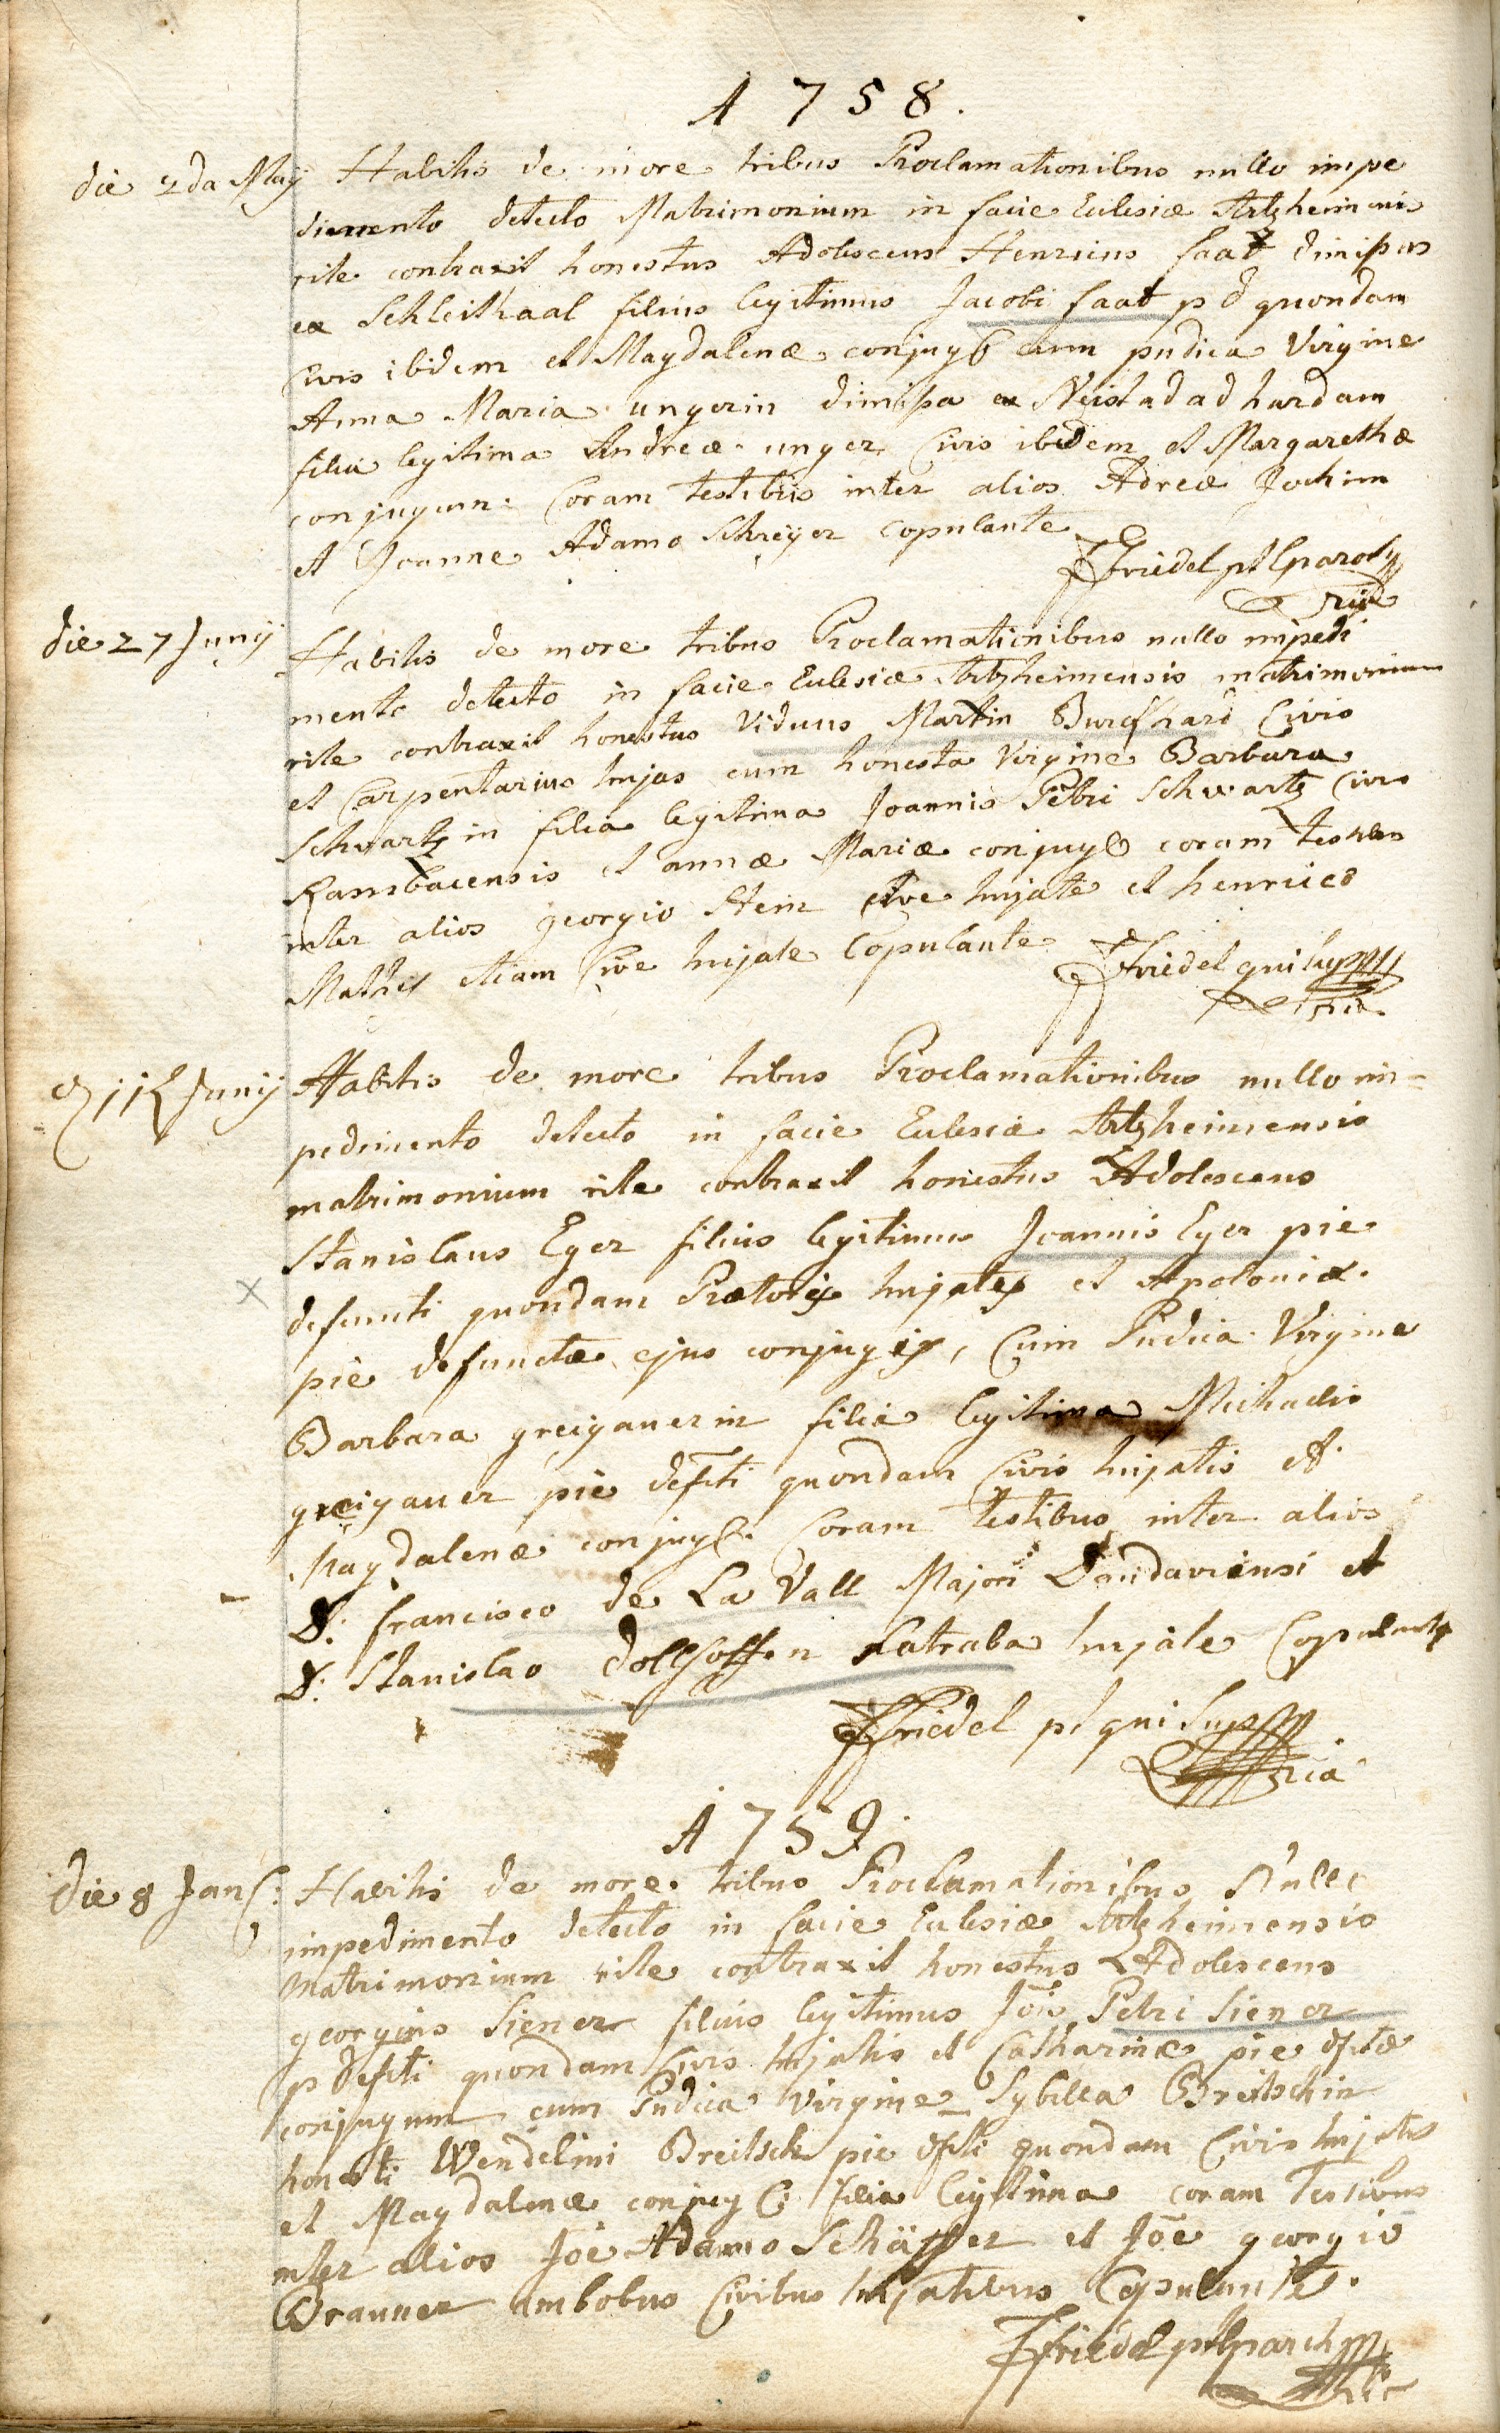 1758.
die 2da Maij Habitis de more tribus Proclamationibus nullo impe
dimento detecto Matrimonium in facie Eclesiæ Artzheimensis
rite contraxit honestus Adolescens Henricus faat dimissus
ex Schleithaal filius legitimus Jacobi faat p d quondam
Civis ibidem et Magdalenæ conjug cum pudica Virgine
Anna Maria ungerin dimissa ex Neistad ad hardam
filia legitima Andreæ unger Civis ibidem et Margarethæ
conjugum: Coram testibus inter alios Adreæ Jochim
et Joanne Adamo Schreijer Copulante
Friedel
die 27 Junij Habitis de more tribus Proclamationibus nullo impedi
mento detecto in facie Eclesiæ Artzheimensis matrimonium
rite contraxit honestus Viduus Martin Burckhard Civis
et Carpentarius hujas cum honesta Virgine Barbara
Schwartzin filia legitima Joannis Petri Schwartz Civis
Ransbacensis et annæ Mariæ conjug coram testibus
inter alios georgio Stein Cive hujate et henrico
Mathis etiam Cive hujate Copulante
Friedel qui supra
Junij Habitis de more tribus Proclamationibus nullo im=
pedimento detecto in facie Eclesiæ Artzheimensis
matrimonium rite contraxit honestus Adolescens
Stanislaus Eger filius legitimus Joannis Eger pie
defuncti quondam Prætoris hujatis et Apoloniæ
pie defunctæ ejus conjugis, Cum Pudica Virgine
Barbara greigauerin filia legitima Michaelis
greigauer pie defcti quondam Civis hujatis et
Magdalenæ conjug: Coram testibus inter alios
D: francisco de La Vall Majori Landaviensi et
D: Stanislao dollhoffen hujate Copulante
Friedel qui Supra
1759.
die 8 Jan: Habitis de more tribus Proclamationibus Nullo
impedimento detecto in facie Eclesiæ Artzheimensis
Matrimonium rite contraxit honestus Adolescens
georgius Siener filius legitimus Jōis Petri Siener
p defcti quondam Civis hujatis et Catharinæ pie dfctæ
conjugum cum Pudica Virgine Sybilla Breitschin
honesti Wendelini Breitsch pie dfcti quondam Civis hujatis
et Magdalenæ conjug filia legitima coram Testibus
inter alios Jōe Adamo Schäffer et Jōe georgio
Brauner ambobus Civibus hujatibus Copulante.
Friedel